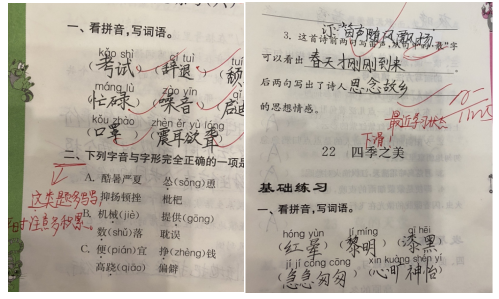 一、看拼音,写词语。
kǎo shì cí tuì
(考试)(辞退)(颓
máng lù zào yīn
(忙碌)(噪音)(启迪
kǒu zhào zhèn ěr yù lóng
(口罩)(震耳欲聋)
二、下列字音与字形完全正确的一项是
A. 酷暑严夏 怂(sǒng)恿
抑扬顿挫 枇杷
B. 机械(jiè) 提供(gōng)
数(shǔ)落 耽误
C. 便(pián)宜 挣(zhèng)钱
高跷(qiāo) 偏僻
这类题多当当
时注意多积累。
3. 这首诗前两句写
字
可以看出 春天才刚刚到来
后两句写出了诗人 思念故乡
的思想情感。
最近学习状态
下滑
22 四季之美
基础练习
一、看拼音,写词语。
hóng yùn lí míng qī hēi
(红晕)(黎明)(漆黑)
jí jí cōng cōng xīn kuàng shén yí
(急急匆匆)(心旷神怡)